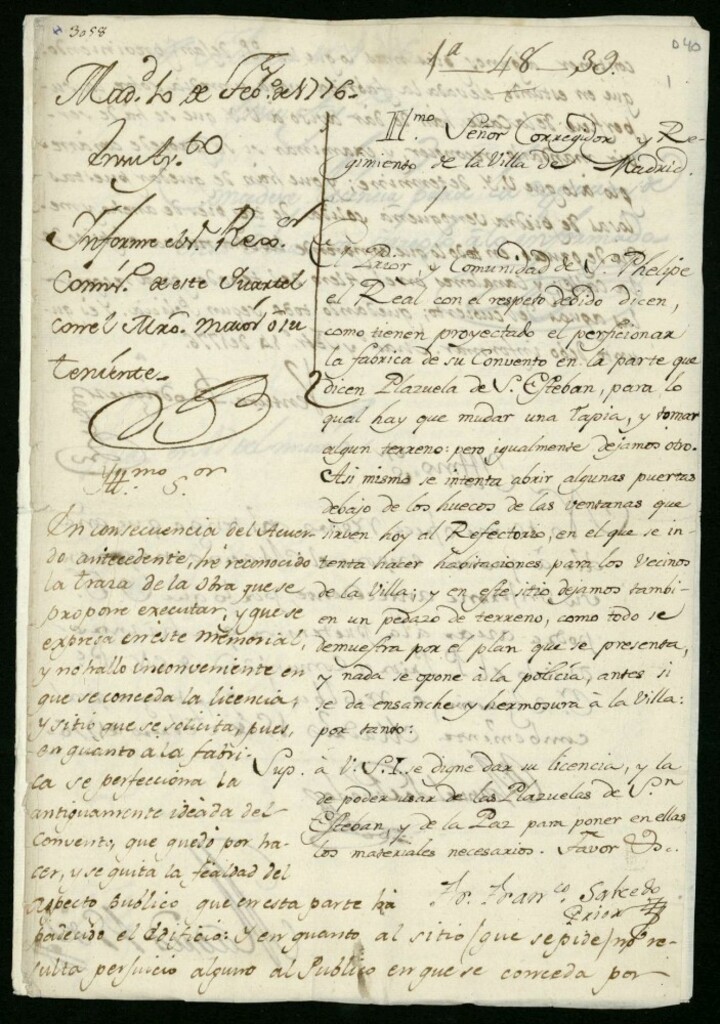 3058
040
1ª 48 39.
Madᵈ 10 de Febº de 1776.
Ayuntº
Informe el Sʳ Rexºʳ
Comisº de este Quartel
con el Mrõ. maiòr o su
teniente.
Illmo Sor
En consecuencia del Acuer-
do antecedente, he reconocido
la traza de la obra que se
propone executar, y que se
expresa en este memorial,
y no hallo inconveniente en
que se conceda la licencia,
y sitio que se solicita, pues,
en quanto a la fabri-
ca se perfecciona la
antiguamente ideada del
Convento, que quedó por ha-
cer, y se quita la fealdad del
aspecto publico que en esta parte ha
padecido el edificio: y en quanto al sitio (que se pide) no re-
sulta perjuicio alguno al Publico en que se conceda por
Ilmo. Señor Corregidor y Re-
gimiento de la Villa de Madrid.
El Prior, y Comunidad de S. Phelipe
el Real con el respeto debido dicen,
como tienen proyectado el perficionar
la fabrica de su Convento en la parte que
dicen Plazuela de S. Esteban, para lo
qual hay que mudar una Tapia, y tomar
algun terreno: pero igualmente dejamos otro.
Asi mismo se intenta abrir algunas puertas
debajo de los huecos de las ventanas que
sirven hoy al Refectorio, en el que se in-
tenta hacer habitaciones para los Vecinos
de la Villa; y en este sitio dejamos tambi-
en un pedazo de terreno, como todo se
demuestra por el plan que se presenta,
y nada se opone à la policia, antes si
se da ensanche y hermosura à la Villa:
por tanto:
Sup. à V. S. I. se digne dar su licencia, y la
de poder usar de las Plazuelas de Sⁿ
Esteban, y de la Paz para poner en ellas
los materiales necesarios. Favor &c.
Fr. Franᶜᵒ Salcedo
Prior